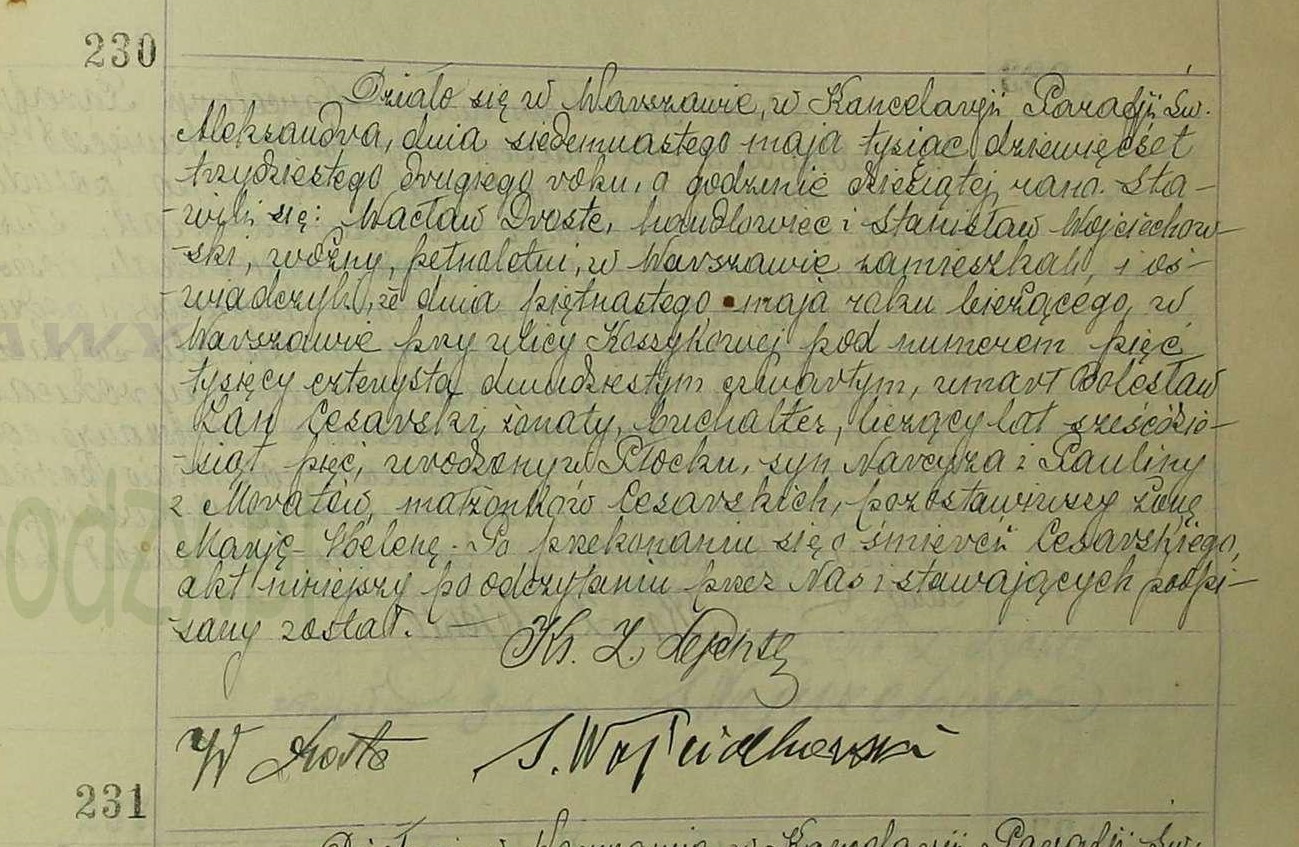 230
Działo się w Warszawie, w Kancelaryji Parafji Św.
Aleksandra, dnia siedemnastego maja tysiąc dziewięćset
trzydziestego drugiego roku, o godzinie dziesiątej rano. Sta-
-wili się: Wacław Droste, handlowiec i Stanisław Wojciechow-
-ski, woźny, pełnoletni, w Warszawie zamieszkali, i oś-
-wiadczyli, że dnia piętnastego maja roku bieżącego, w
Warszawie przy ulicy Koszykowej pod numerem pięć
tysięcy czterysta dwudziestym czwartym, umarł Bolesław
Jan Cesarski, żonaty, buchalter, liczący lat sześćdzie-
-siąt pięć, urodzony w Płocku, syn Narcyza i Pauliny
z małżonków Cesarskich, pozostawiwszy żonę
Marję-Helenę. Po przekonaniu się o śmierci Cesarskiego,
akt niniejszy po odczytaniu przez Nas i stawających podpi-
-sany został. —
Ks. Z.
W Droste S. Wojciechowski
231
Działo się w Warszawie w Kancelaryji Parafji Św.